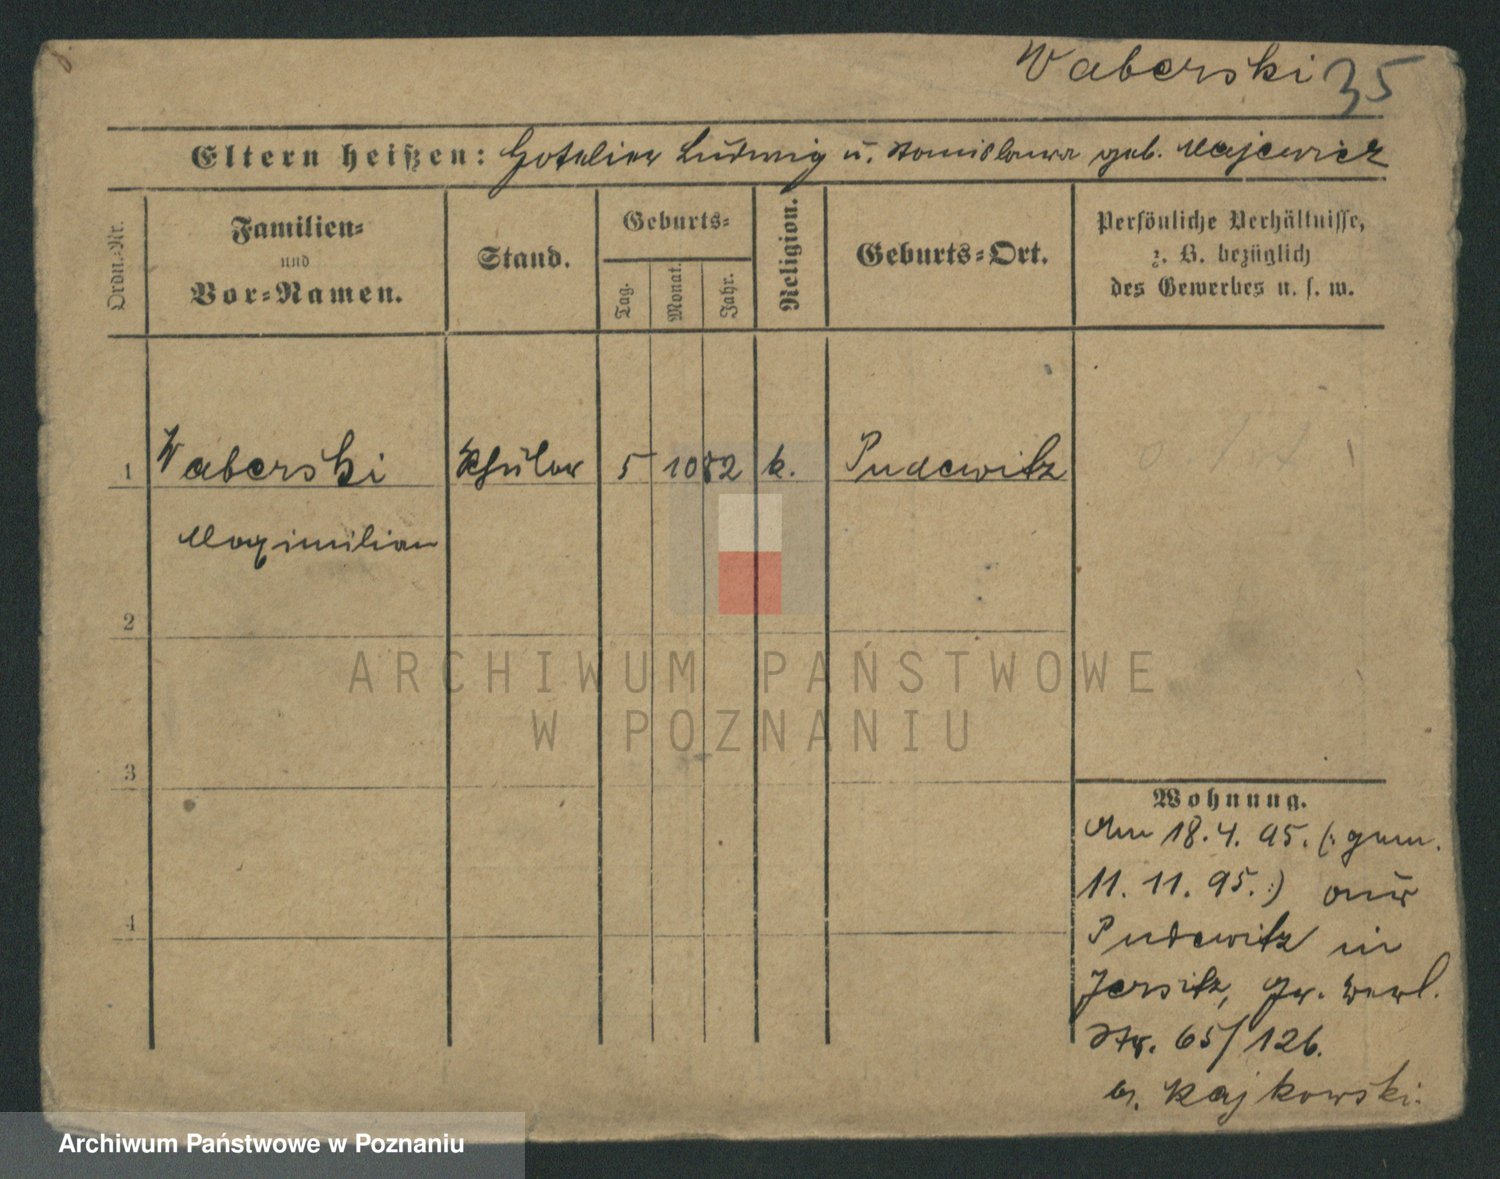 Waberski 35
Eltern heißen: Hotelier Ludwig u. Stanislawa geb. Majewicz
Ordn.-Nr.
Familien-
und
Vor-Namen.
Stand.
Geburts-
Tag.
Monat.
Jahr.
Religion.
Geburts-Ort.
Persönliche Verhältnisse,
z. B. bezüglich
des Gewerbes u. s. w.
1 Waberski Schüler 5 10 82 k. Pudewitz
Maximilian
2
3
4
Wohnung.
Am 18.4.95. (: gem.
11.11.95. :) aus
Pudewitz in
Jersitz, Gr. Berl.
Str. 65/126.
b. Kajkowski.
ARCHIWUM PAŃSTWOWE
W POZNANIU
Archiwum Państwowe w Poznaniu